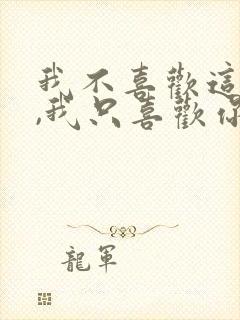 我不喜歡這
,我只喜歡你
龍軍